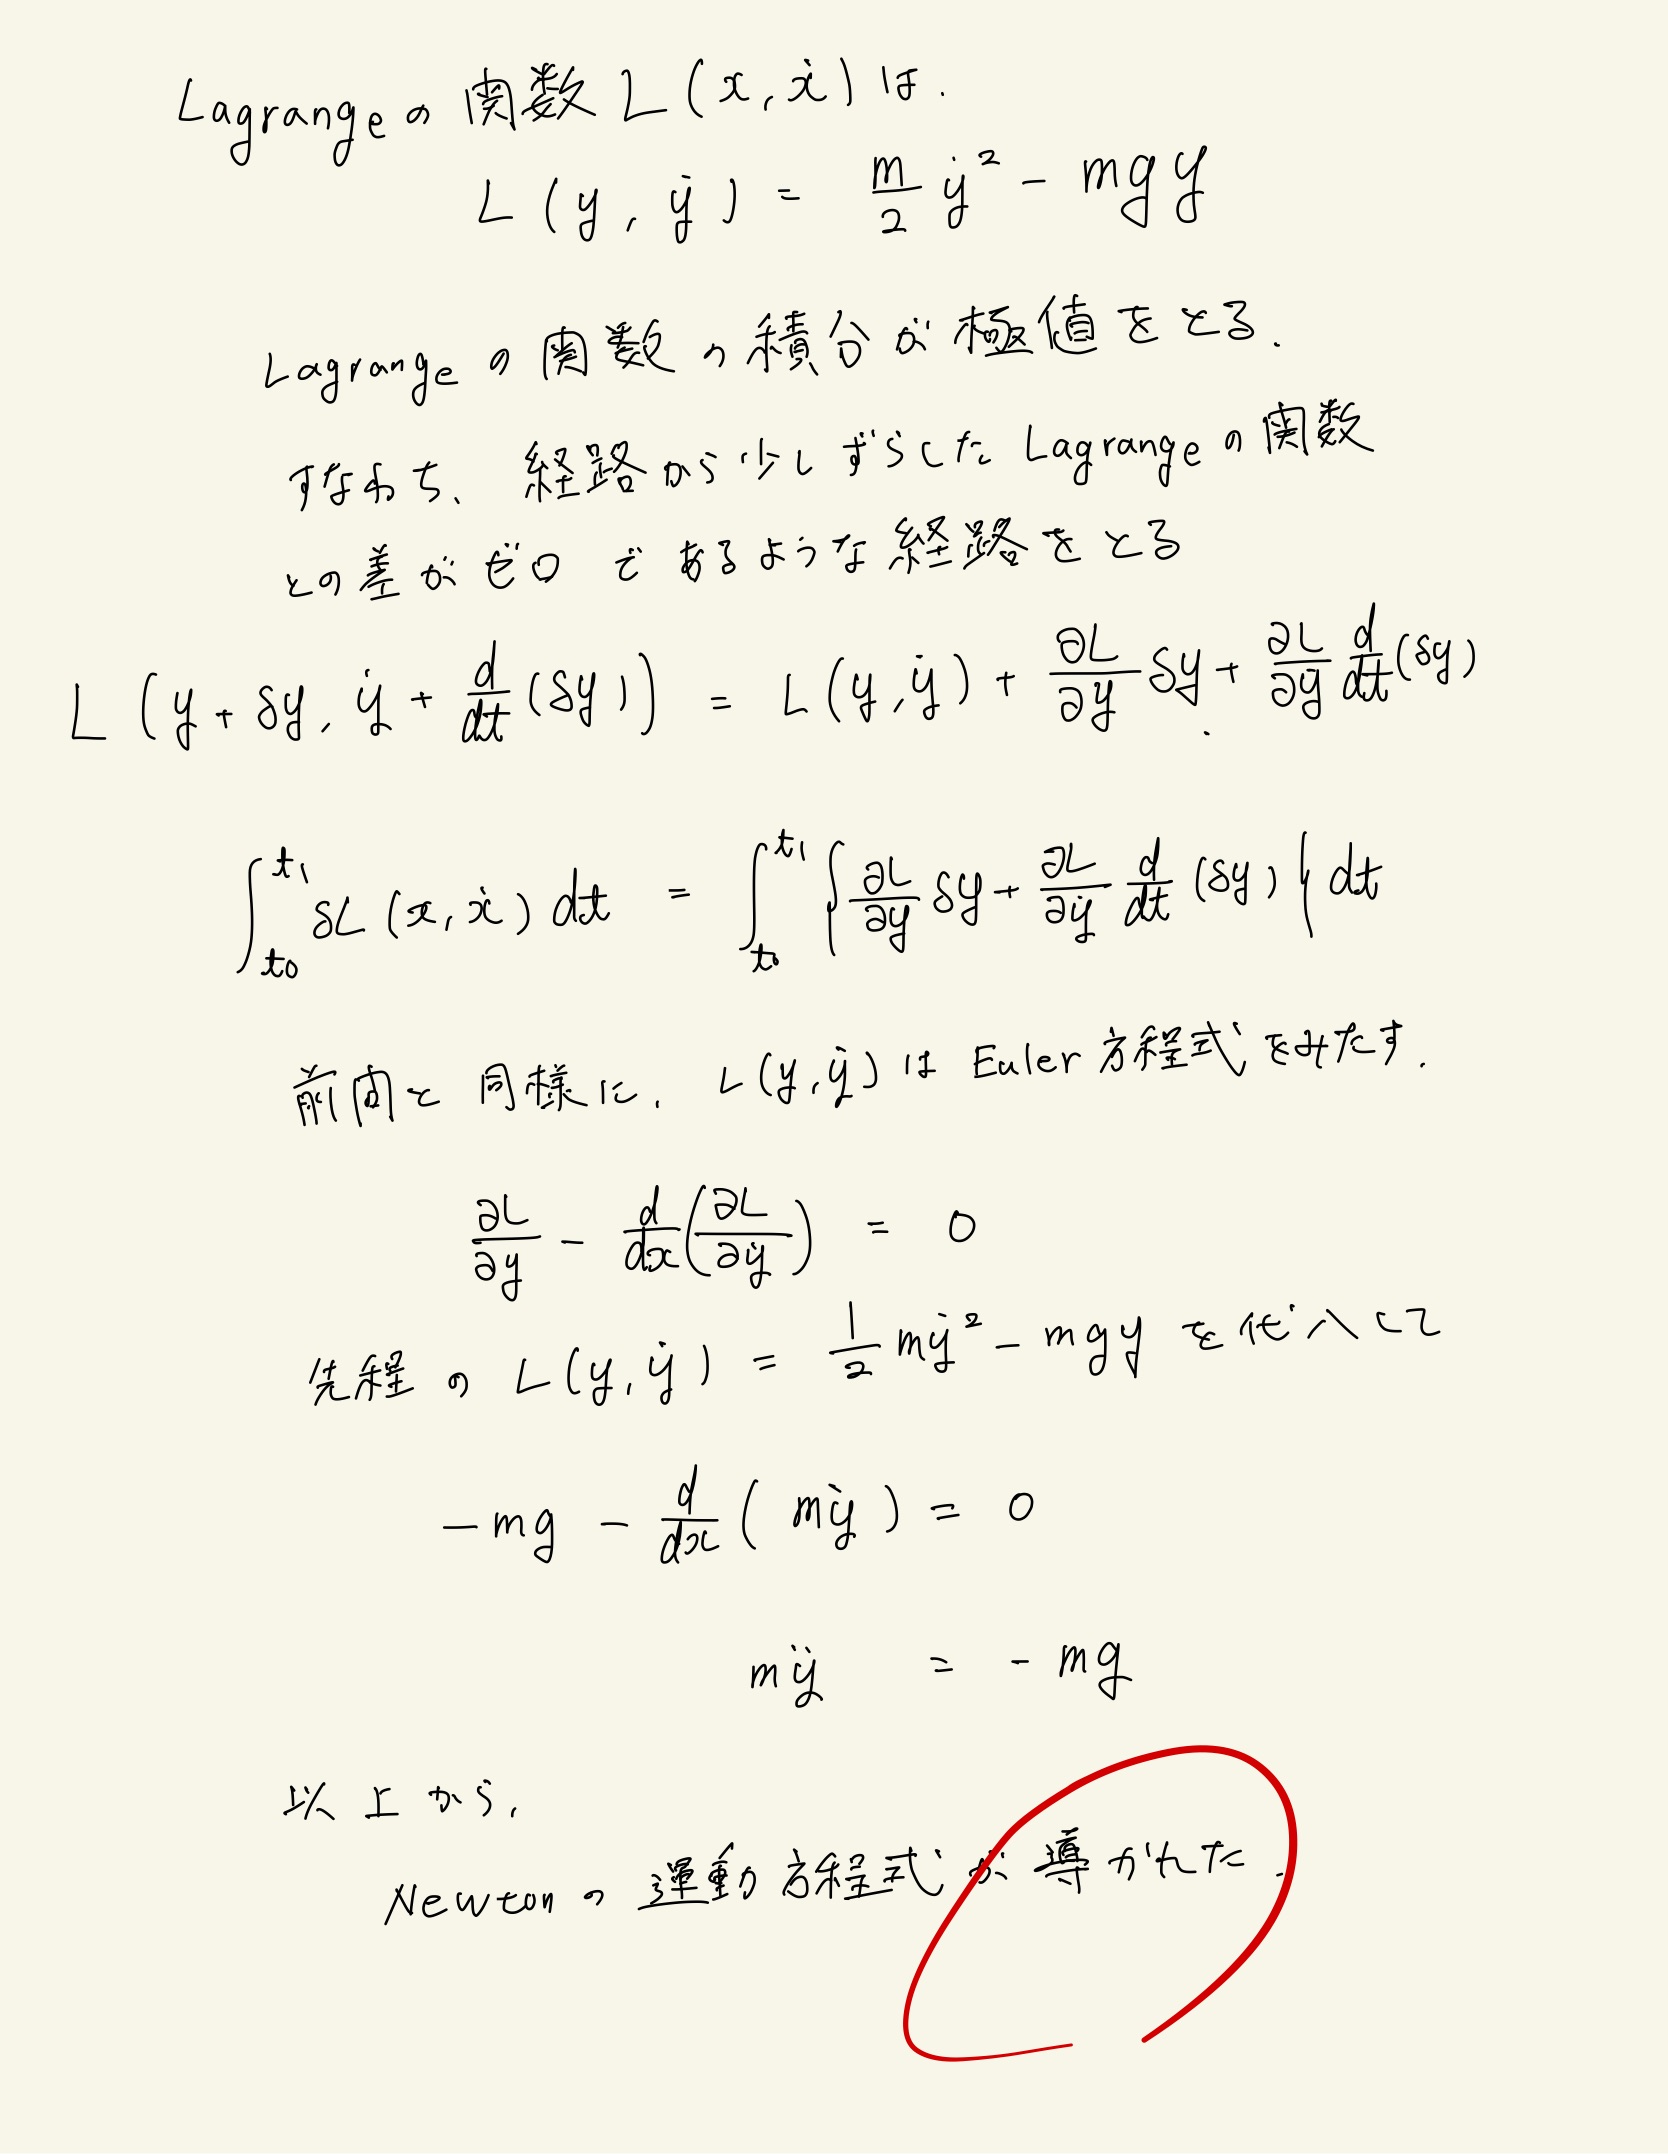 Lagrangeの関数 L(x,ẋ)は.
L(y,ẏ) = m/2 ẏ² - mgy
Lagrangeの関数の積分が極値をとる.
すなわち、経路から少しずらしたLagrangeの関数
との差がゼロであるような経路をとる
L(y+δy, ẏ + d/dt(δy)) = L(y,ẏ) + ∂L/∂y δy + ∂L/∂ẏ d/dt(δy).
∫_{t₀}^{t₁} δL(x,ẋ)dt = ∫_{t₀}^{t₁} {∂L/∂y δy + ∂L/∂ẏ d/dt(δy)} dt
前問と同様に. L(y,ẏ)はEuler方程式をみたす.
∂L/∂y - d/dx(∂L/∂ẏ) = 0
先程の L(y,ẏ) = 1/2 mẏ² - mgy を代入して
-mg - d/dx(mẏ) = 0
mÿ = -mg
以上から,
Newtonの運動方程式が導かれた.